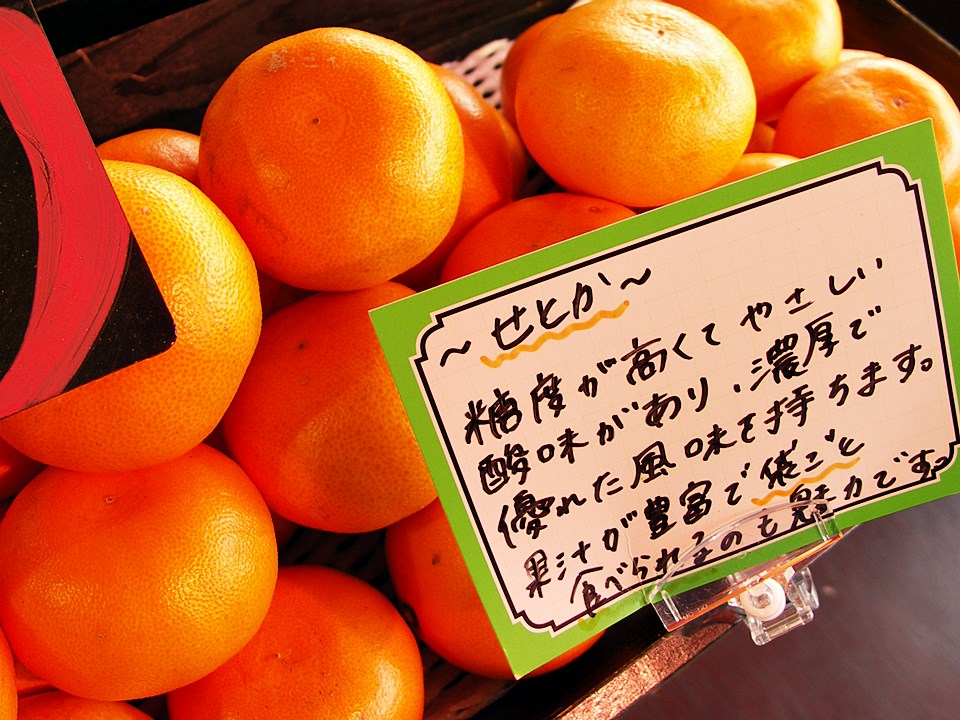 ～せとか～
糖度が高くて やさしい
酸味があり、濃厚で
優れた風味を持ちます。
果汁が豊富で袋ごと
食べられるのも魅力です。